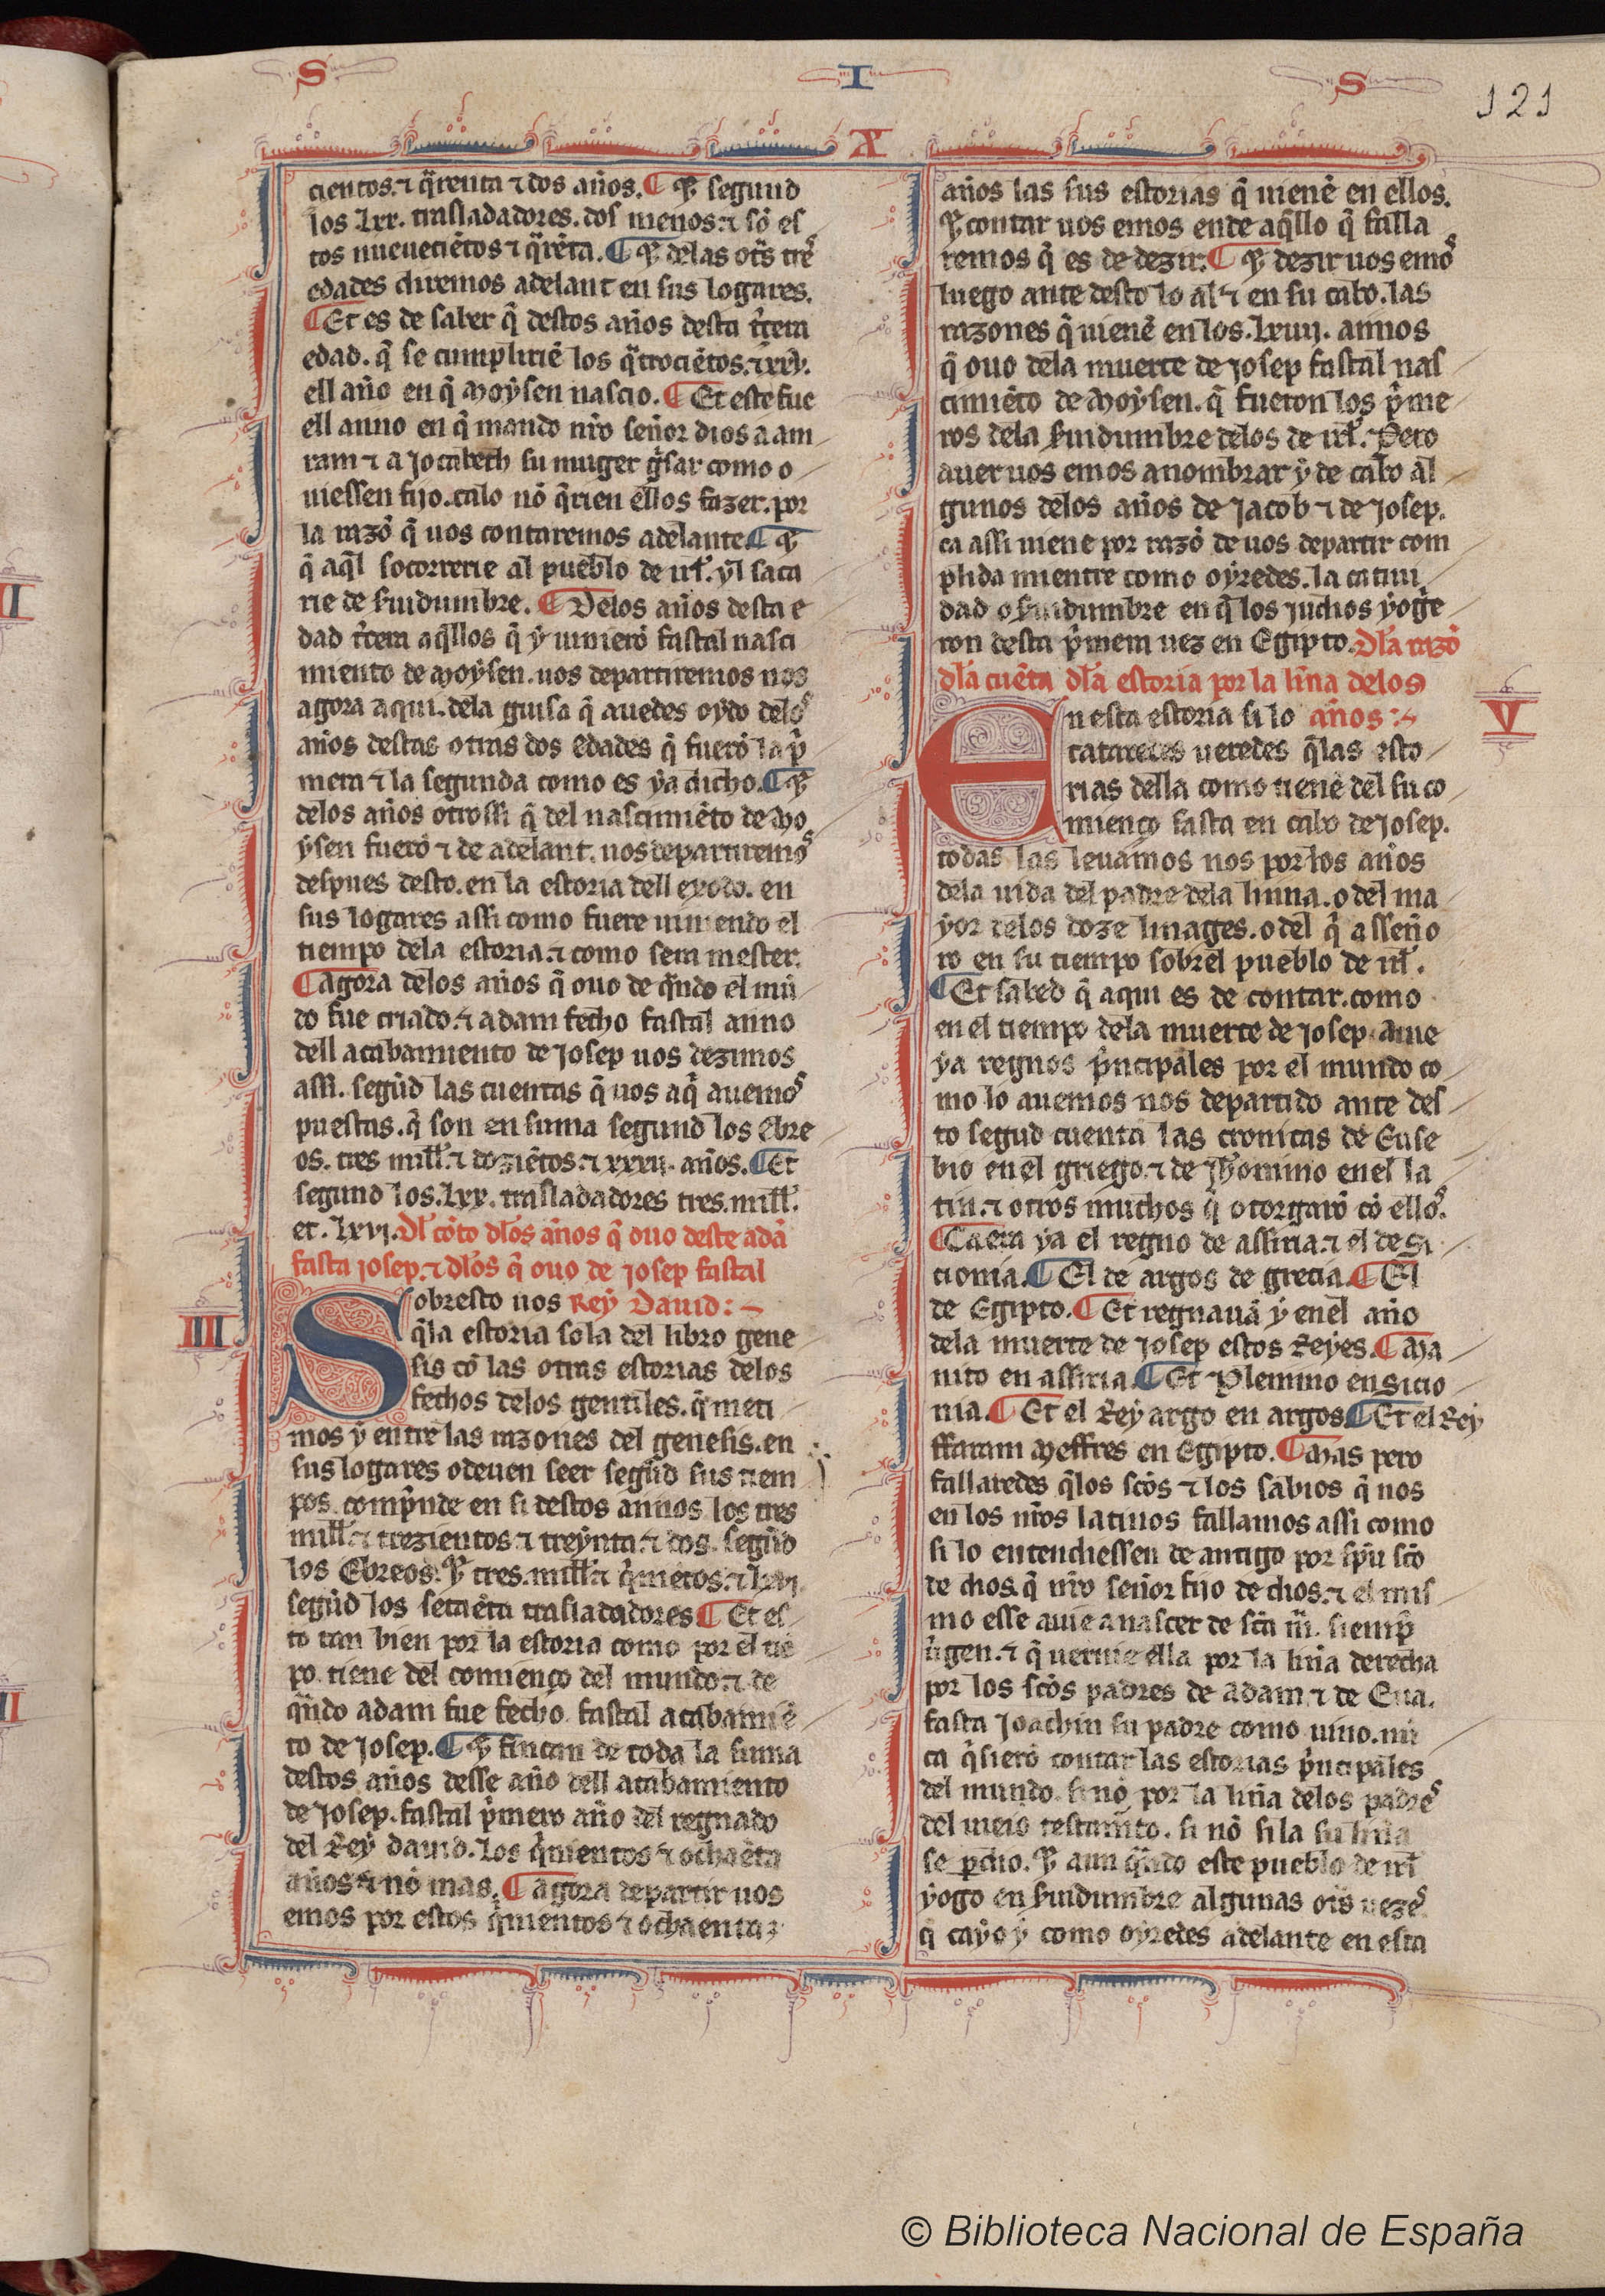 S I S
121
X
cientos. ⁊ q̃renta ⁊ dos años. ¶ Et segund
los .Lxx. trasladadores. dos menos. ⁊ sõ es
tos nueueciẽtos ⁊ q̃rẽta. ¶ Et delas otãs tre͛s
edades diremos adelant en sus logares.
¶ Et es de saber q̃ destos años desta t̃cera
edad. q̃ se cumplirie los q̃trociẽtos. ⁊
ell año en q̃ Moẏsen nascio. ¶ Et este fue
ell anno en q̃ mando nr̃o señor dios a am
ram ⁊ a Jocabech su muger g̃sar como o
uiessen fijo. calo nõ q̃rien ellos fazer. por
la razõ q̃ uos contaremos adelante. ¶ Et
q̃ aq̃l socorrerie al pueblo de irl̃. ẏl saca
rie de ſuidumbre. ¶ Delos años desta e
dad t̃cera aq̃llos q̃ ẏ uinierõ fastal nasci
miento de Moẏsen. uos departiremos nos
agora aqui. dela guisa q̃ auedes oẏdo delos
años destas otras dos edades q̃ fuerõ la p̃
mera ⁊ la segunda como es ẏa dicho. ¶ Et
delos años otrossi q̃ del nascimiẽto de Mo
ẏsen fuerõ ⁊ de adelant. uos departiremos
despues desto. en la estoria dell exodo. en
sus logares assi como fuere uiniendo el
tiempo dela estoria. ⁊ como sera mester.
¶ Agora delos años q̃ ouo de q̃ndo el mũ
do fue criado. ⁊ adam fecho fastal anno
dell acabamiento de Josep uos dezimos
assi. segũd las cuentas q̃ uos aq̃ auemos
puestas. q̃ son en suma segund los Ebre
os. tres mill̃. ⁊ doziẽtos. ⁊ xxxii. años. ¶ Et
segund los .Lxx. trasladadores tres. mill̃.
et. Lxvj. Dl̃ cõto dl̃os años q̃ ouo deste adã
fasta josep. ⁊ dl̃os q̃ ouo de josep fastal
Sobresto uos Reẏ Dauid:
IIII
q̃la estoria sola del libro gene
sis cõ las otras estorias delos
fechos delos gentiles. q̃ meti
mos ẏ entre las razones del genesis. en
sus logares o deuen seer segũd sus tiem
pos. comp̃nde en si destos annos los tres
mill̃. ⁊ trezientos ⁊ treẏnta. ⁊ dos. segũd
los Ebreos. Et tres. mill̃. ⁊ q̃niẽtos. ⁊ Lxvj
segũd los setaẽta trasladadores ¶ Et es
to tan bien por la estoria como por el tiẽ
po. tiene del comienço del mundo. ⁊ de
q̃ndo adam fue fecho. fastal acabamiẽ
to de Josep. ¶ Et fincan de toda la suma
destos años desse año dell acabamiento
de Josep. fastal p̃mero año del regnado
del Reẏ dauid. los q̃nientos ⁊ ochaẽta
años ⁊ nõ mas. ¶ Agora departir uos
emos por estos q̃nientos ⁊ ochaenta
años las sus estorias q̃ uienẽ en ellos.
Et contar uos emos ende aq̃llo q̃ falla
remos q̃ es de dezir. ¶ Et dezir uos emos
luego ante desto lo al ⁊ en su cabo. las
razones q̃ uienẽ en los. Lxiiij. annos
q̃ ouo dela muerte de josep fastal nas
cimiẽto de Moẏsen. q̃ fueron los p̃me
ros dela ſuidumbre delos de irl̃. Pero
auer uos emos a nombrar ẏ de cabo al
gunos delos años de Jacob ⁊ de Josep.
ca assi uiene por razõ de uos departir com
plida mientre como oẏredes. la catiui
dad o ſuidumbre en q̃ los judios ẏog̃e
ron desta p̃mera uez en Egipto. Dl̃a razõ
dl̃a cuẽta dl̃a estoria por la lin̄a delos
En esta estoria si lo años:
V
cataredes ueredes q̃las esto
rias della como tienẽ del su co
mienço fasta en cabo de josep.
todas las leuamos nos por los años
dela uida del padre dela linna. o del ma
ẏor delos doze linages. o del q̃ asseño
ro en su tiempo sobrel pueblo de irl̃.
¶ Et sabed q̃ aqui es de contar. como
en el tiempo dela muerte de josep auie
ẏa regnos p̃ncipales por el mundo co
mo lo auemos nos departido ante des
to segud cuenta las cronicas de Euse
bio en el griego. ⁊ de Jh̃onimo en el la
tin. ⁊ otros muchos q̃ otorgarõ cõ ellos.
¶ Ca era ẏa el regno de assiria. ⁊ el de Si
cionia. ¶ El de argos de grecia. ¶ El
de Egipto. ¶ Et regnauã ẏ en el año
dela muerte de josep estos Reẏes. ¶ Ma
nito en assiria. ¶ Et Plemino en Sicio
nia. ¶ Et el Reẏ argo en argos ¶ Et el Reẏ
ffaram Meffres en Egipto. ¶ Mas pero
fallaredes q̃los sc̃os ⁊ los sabios q̃ nos
en los nr̃os latinos fallamos assi como
si lo entendiessen de antigo por sp̃u sc̃o
de dios. q̃ nr̃o señor fijo de dios. ⁊ el mis
mo esse auie a nascer de sc̃a m̃. siemp̃
ũgen. ⁊ q̃ uernie ella por la liña derecha
por los sc̃os padres de adam. ⁊ de Eua.
fasta Joachin su padre como uino. nũ
ca q̃sierõ contar las estorias p̃ncipales
del mundo. si nõ por la liña delos padres
del uieio testam̃to. si nõ si la su liña
se p̱dio. Et aun q̃ndo este pueblo de irl̃
ẏogo en ſuidumbre algunas ot̃s uezes
q̃ caẏo ẏ como oẏredes adelante en esta
© Biblioteca Nacional de España